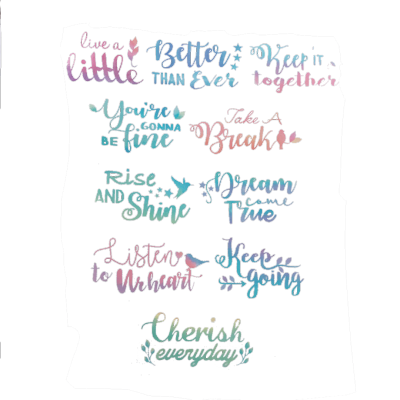 live a
little
Better
THAN Ever
Keep IT
together
You're
GONNA
BE fine
Take A
Break
Rise
AND
Shine
Dream
come
True
Listen
to Urheart
Keep
going
Cherish
everyday